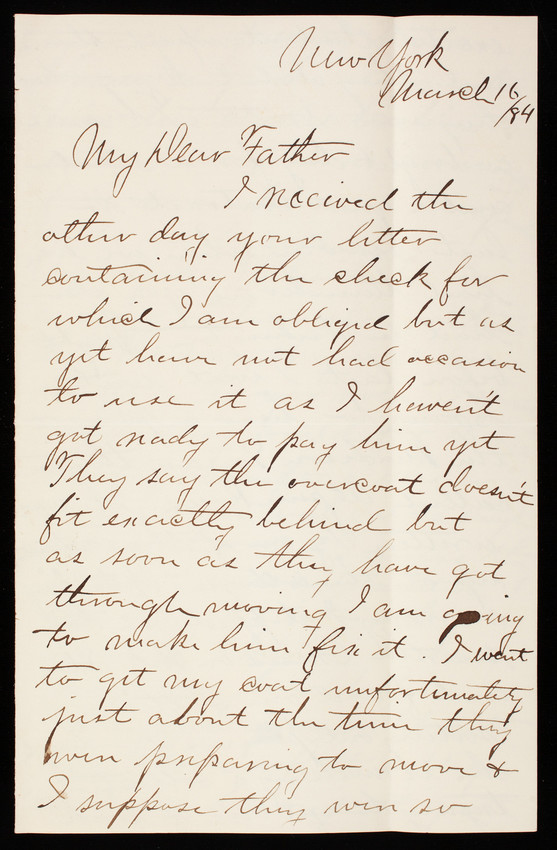 New York
March 16/84
My Dear Father
I received the
other day your letter
containing the check for
which I am obliged but as
yet have not had occasion
to use it as I haven't
got ready to pay him yet
They say the overcoat doesn't
fit exactly behind but
as soon as they have got
through moving I am going
to make him fix it. I went
to get my coat unfortunately
just about the time they
were preparing to move &
I suppose they were so